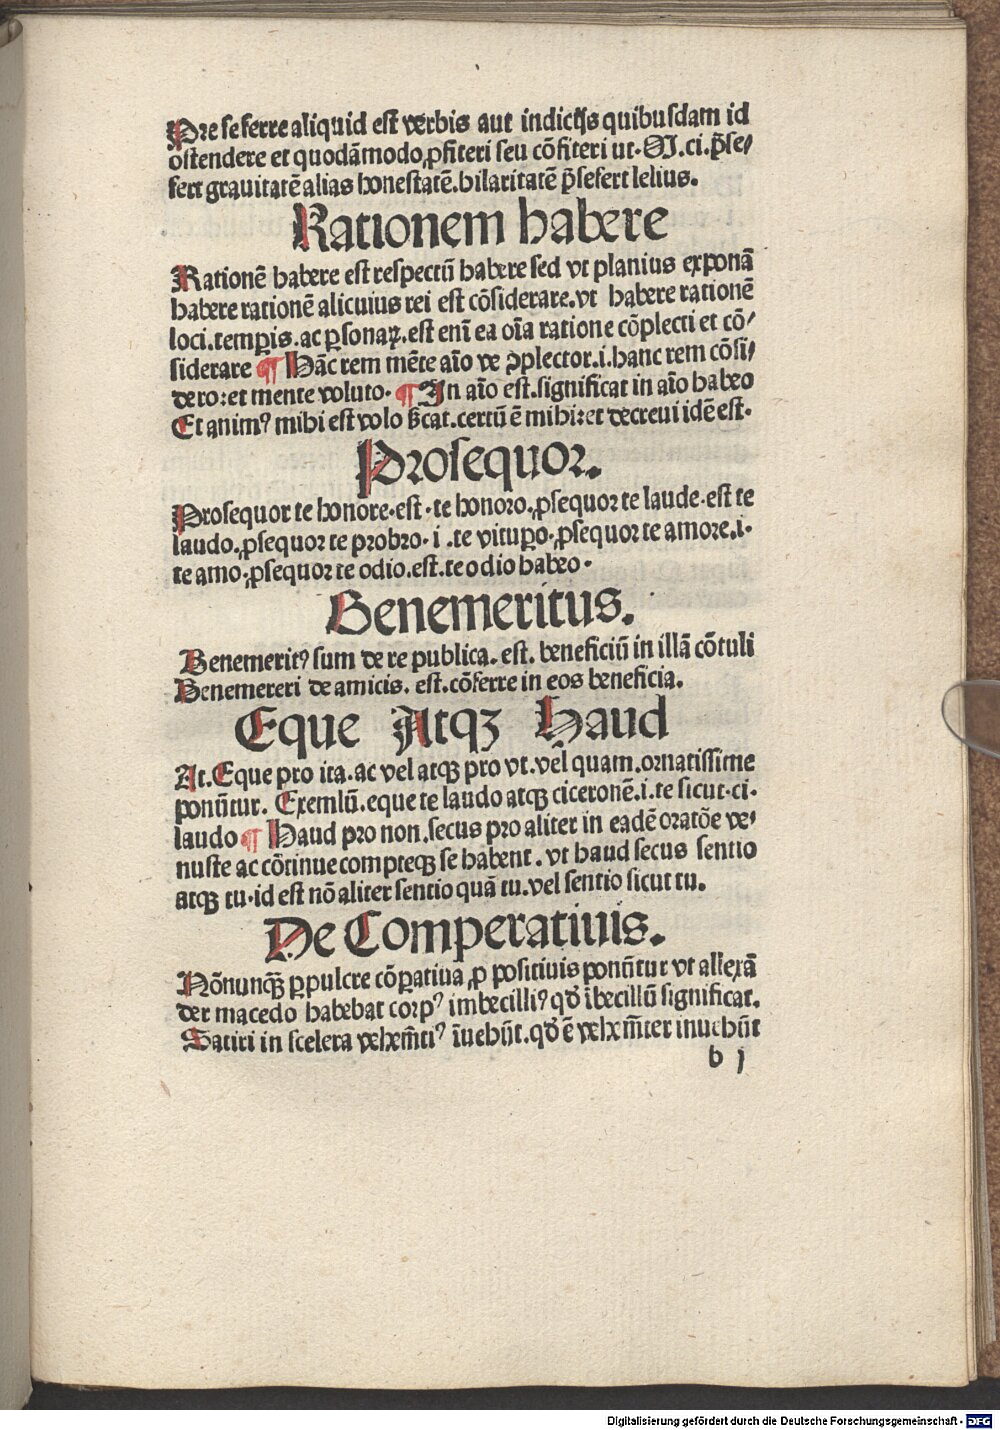 Pre se ferre aliquid est verbis aut indicijs quibusdam id
ostendere et quodāmodo ꝓfiteri seu cōfiteri ut. M. ci. p̄se⸗
fert grauitatē alias honestatē. hilaritatē p̄sefert lelius.
Rationem habere
Rationē habere est respectū habere sed vt planius exponā
habere rationē alicuius rei est cōsiderare. vt habere rationē
loci. temꝑis. ac ꝑsonaꝝ. est enī ea oīa ratione cōplecti et cō⸗
siderare ¶ Hāc rem mēte aīo ve ꝯplector. i. hanc rem cōsi⸗
dero: et mente voluto. ¶ In aīo est. significat in aīo habeo
Et animꝰ mihi est volo sīcat. certū ē mihi: et decreui idē est.
Prosequor.
Prosequor te honore. est. te honoro. ꝓsequor te laude. est te
laudo. ꝓsequor te probro. i. te vituꝑo. ꝓsequor te amore. i.
te amo. ꝓsequor te odio. est. te odio habeo.
Benemeritus.
Benemeritꝰ sum de re publica. est. beneficiū in illā cōtuli
Benemereri de amicis. est. cōferre in eos beneficia.
Eque Atqꝫ Haud
At. Eque pro ita. ac vel atqꝫ pro vt. vel quam. ornatissime
ponūtur. Exemlū. eque te laudo atqꝫ ciceronē. i. te sicut. ci.
laudo ¶ Haud pro non. secus pro aliter in eadē oratōe ve⸗
nuste ac cōtinue compteqꝫ se habent. vt haud secus sentio
atqꝫ tu. id est nō aliter sentio quā tu. vel sentio sicut tu.
De Comperatiuis.
Nōnunqꝫ ꝑpulcre cōꝑatiua ꝓ positiuis ponūtur vt allexā
der macedo habebat corpꝰ imbecilliꝰ qd̓ ībecillū significat.
Satiri in scelera vehem̄tiꝰ īuehūt. qd̓ ē vehem̄ter inuehūt
b j
Digitalisierung gefördert durch die Deutsche Forschungsgemeinschaft - DFG